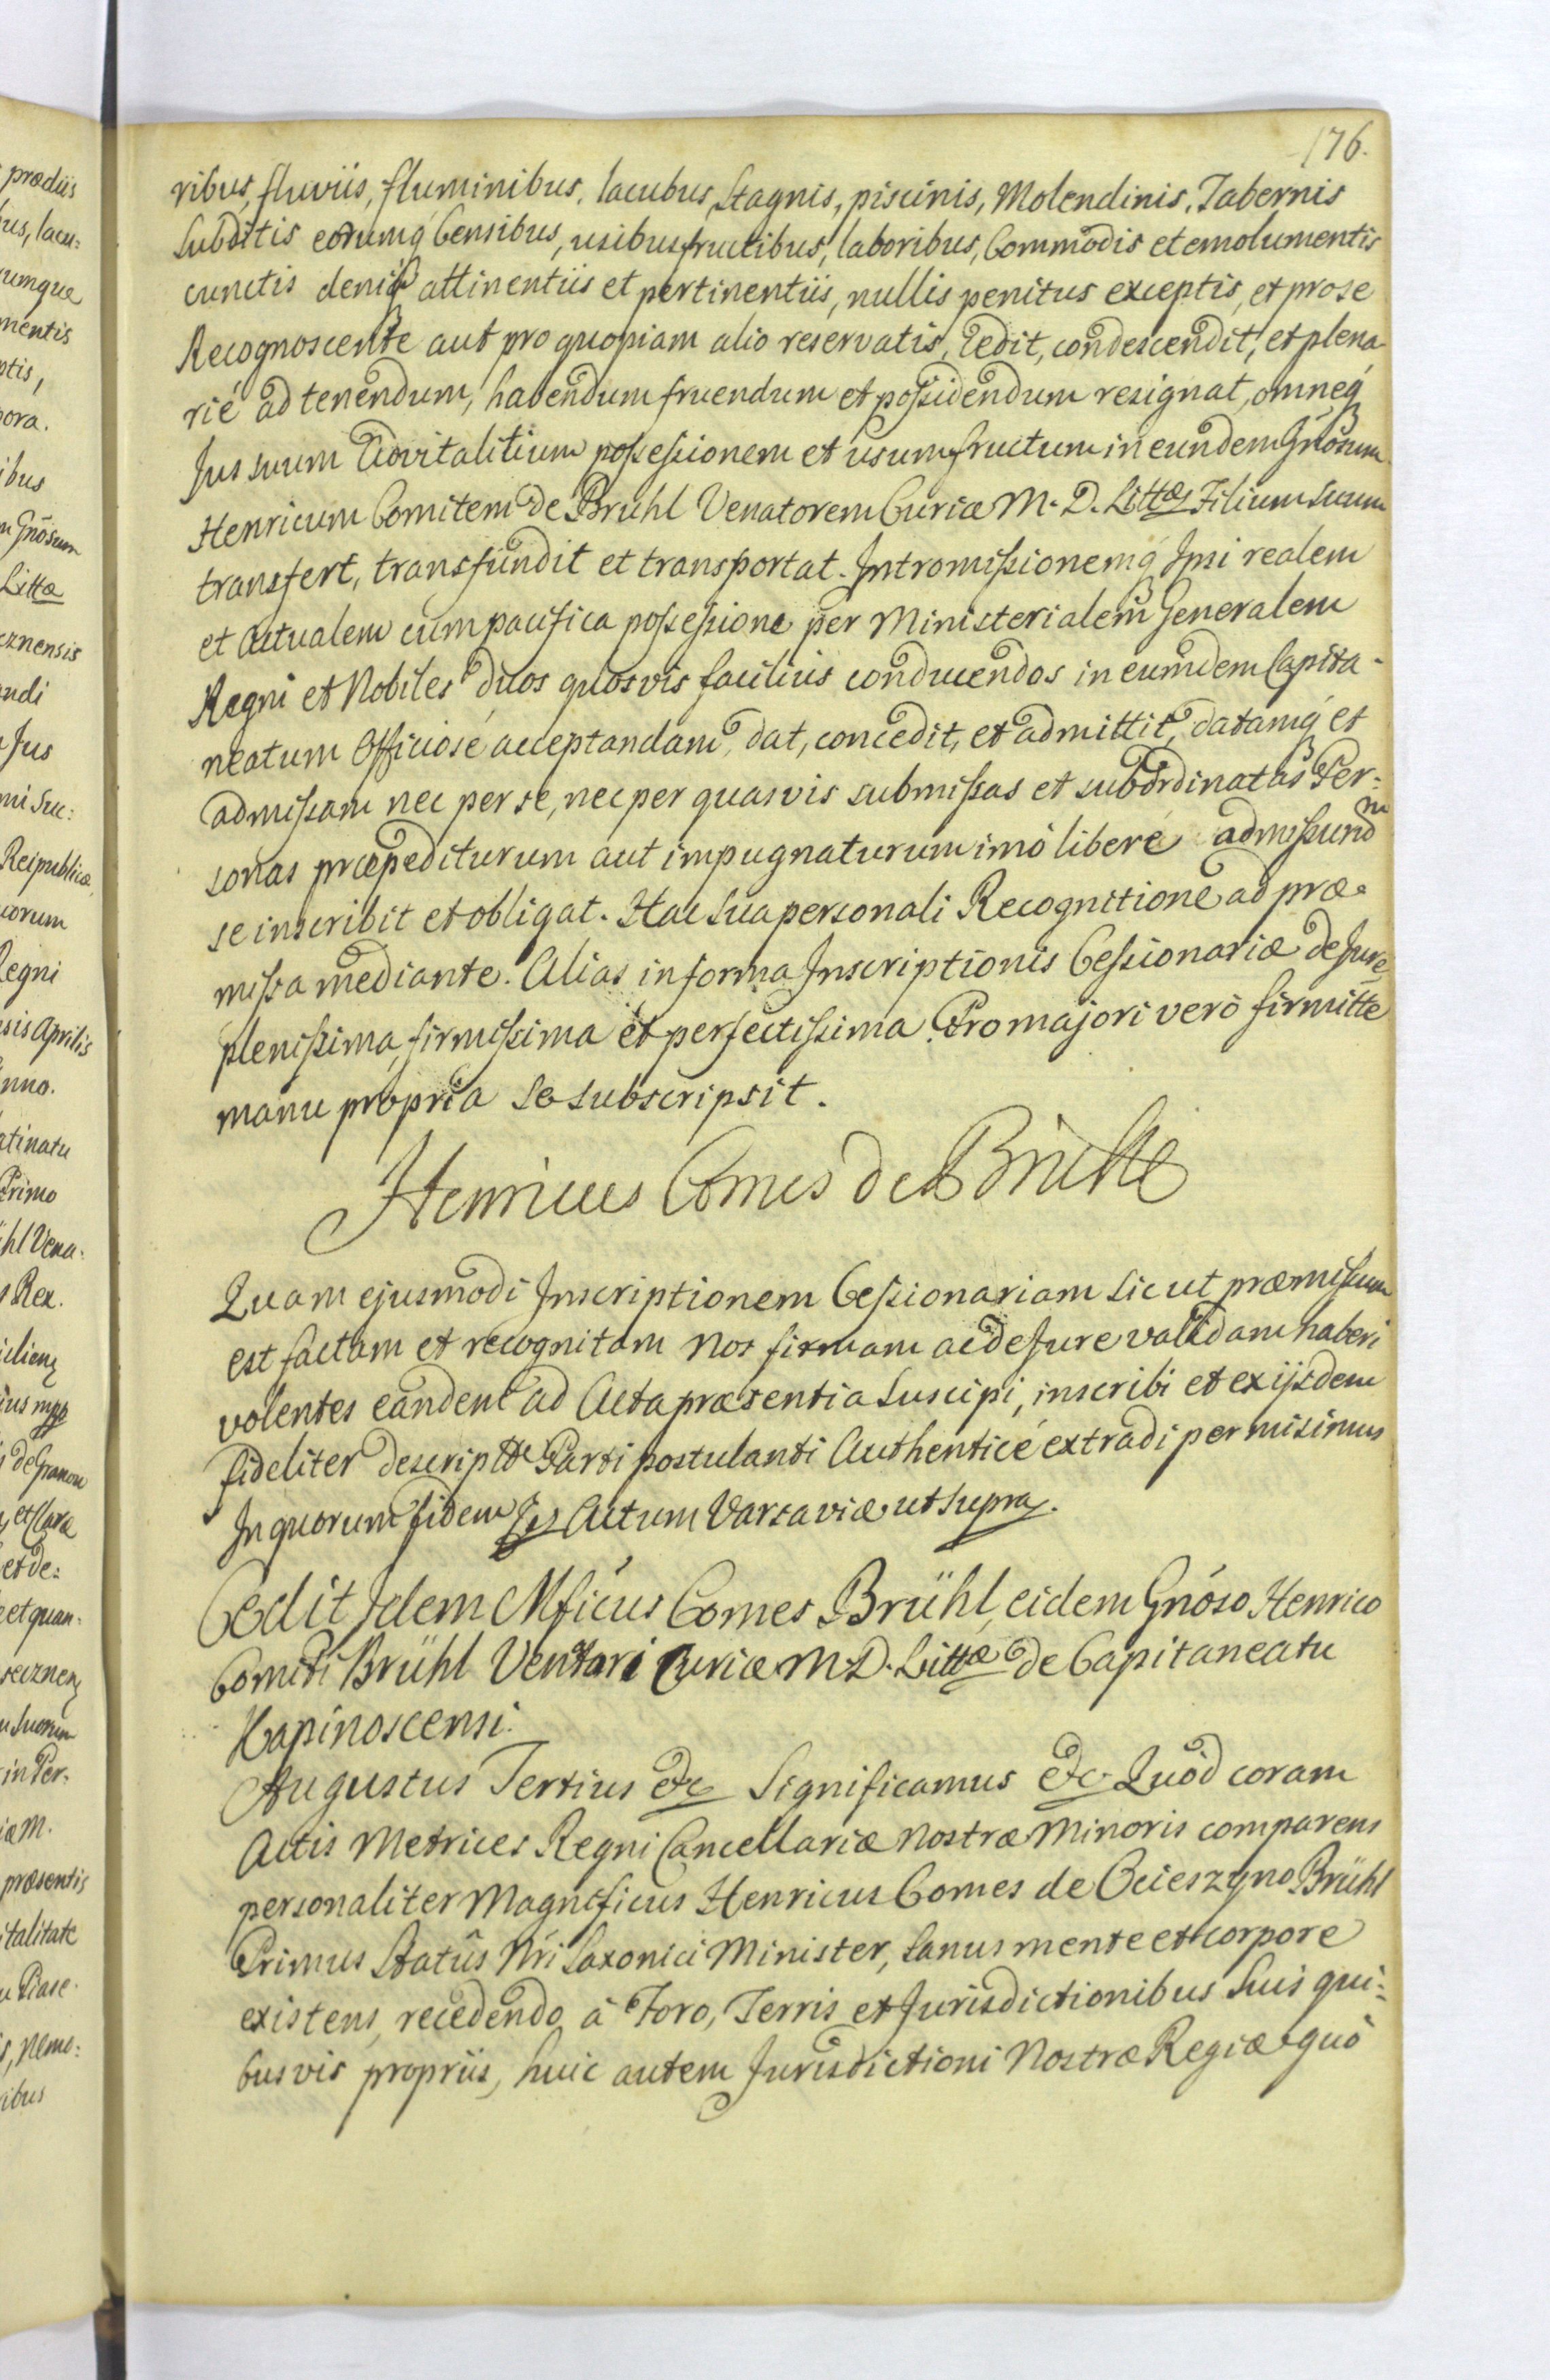 176.
ribus, fluviis, fluminibus, lacubus, Stagnis, piscinis, Molendinis, Tabernis
Subditis eorumq́ Censibus, usibusfructibus, laboribus, Commodis et emolumentis
cunctis deniq́ attinentiis et pertinentiis, nullis penitus exceptis, et pro se
Recognoscente aut pro quopiam alio reservatis, Cedit, condescendit, et plena
rié ad tenendum, habendum fruendum et possidendum resignat, omneq́
Jus suum Advitalitium possessionem et usumfructum in eundem Gnõsum
Henricum Comitem de Bruhl Venatorem Curiæ M. D. Littæ Filium suum
transfert, transfundit et transportat. Intromissionemq́ Jmi realem
et Actualem cum pacifica possessione per Ministerialem Generalem
Regni et Nobiles duos quosvis facilius conducendos in eumdem Capita-
neatum Officiosé acceptandam, dat, concedit, et admittit, datamq́ et
admissam nec per se, nec per quasvis submissas et subordinatas Per=
sonas præpediturum aut impugnaturum imò liberé admissurum
se inscribit et obligat. Hac Sua personali Recognitione ad præ-
missa mediante. Alias in forma Inscriptionis Cessionariæ de Jure
plenissima, firmissima et perfectissima. Pro majori verò firmitte
manu propria se subscripsit.
Henricus Comes de Bruhl
Quam ejusmodi Inscriptionem Cessionariam sicut præmissum
est factam et recognitam Nos firmam ac de Jure validam haberi
volentes eandem ad Acta præsentia Suscipi, inscribi et ex ijsdem
fideliter descriptã Parti postulanti Authenticé extradi permisimus
In quorum fidem Actum Varsaviæ ut supra.
Cedit Idem Mficus Comes Brühl, eidem Gnóso Henrico
Comiti Brühl Venatori Curiæ M. D. Littæ de Capitaneatu
Kapinoscensi.
Augustus Tertius &c Significamus &c Quòd coram
Actis Metrices Regni Cancellariæ Nostræ Minoris comparens
personaliter Magnificus Henricus Comes de Ocieszyno Brühl
Primus Statûs Nri Saxonici Minister, sanus mente et corpore
existens, recedendo à Foro, Terris et Jurisdictionibus Suis qui=
busvis propriis, huic autem Jurisdictioni Nostræ Regiæ quò